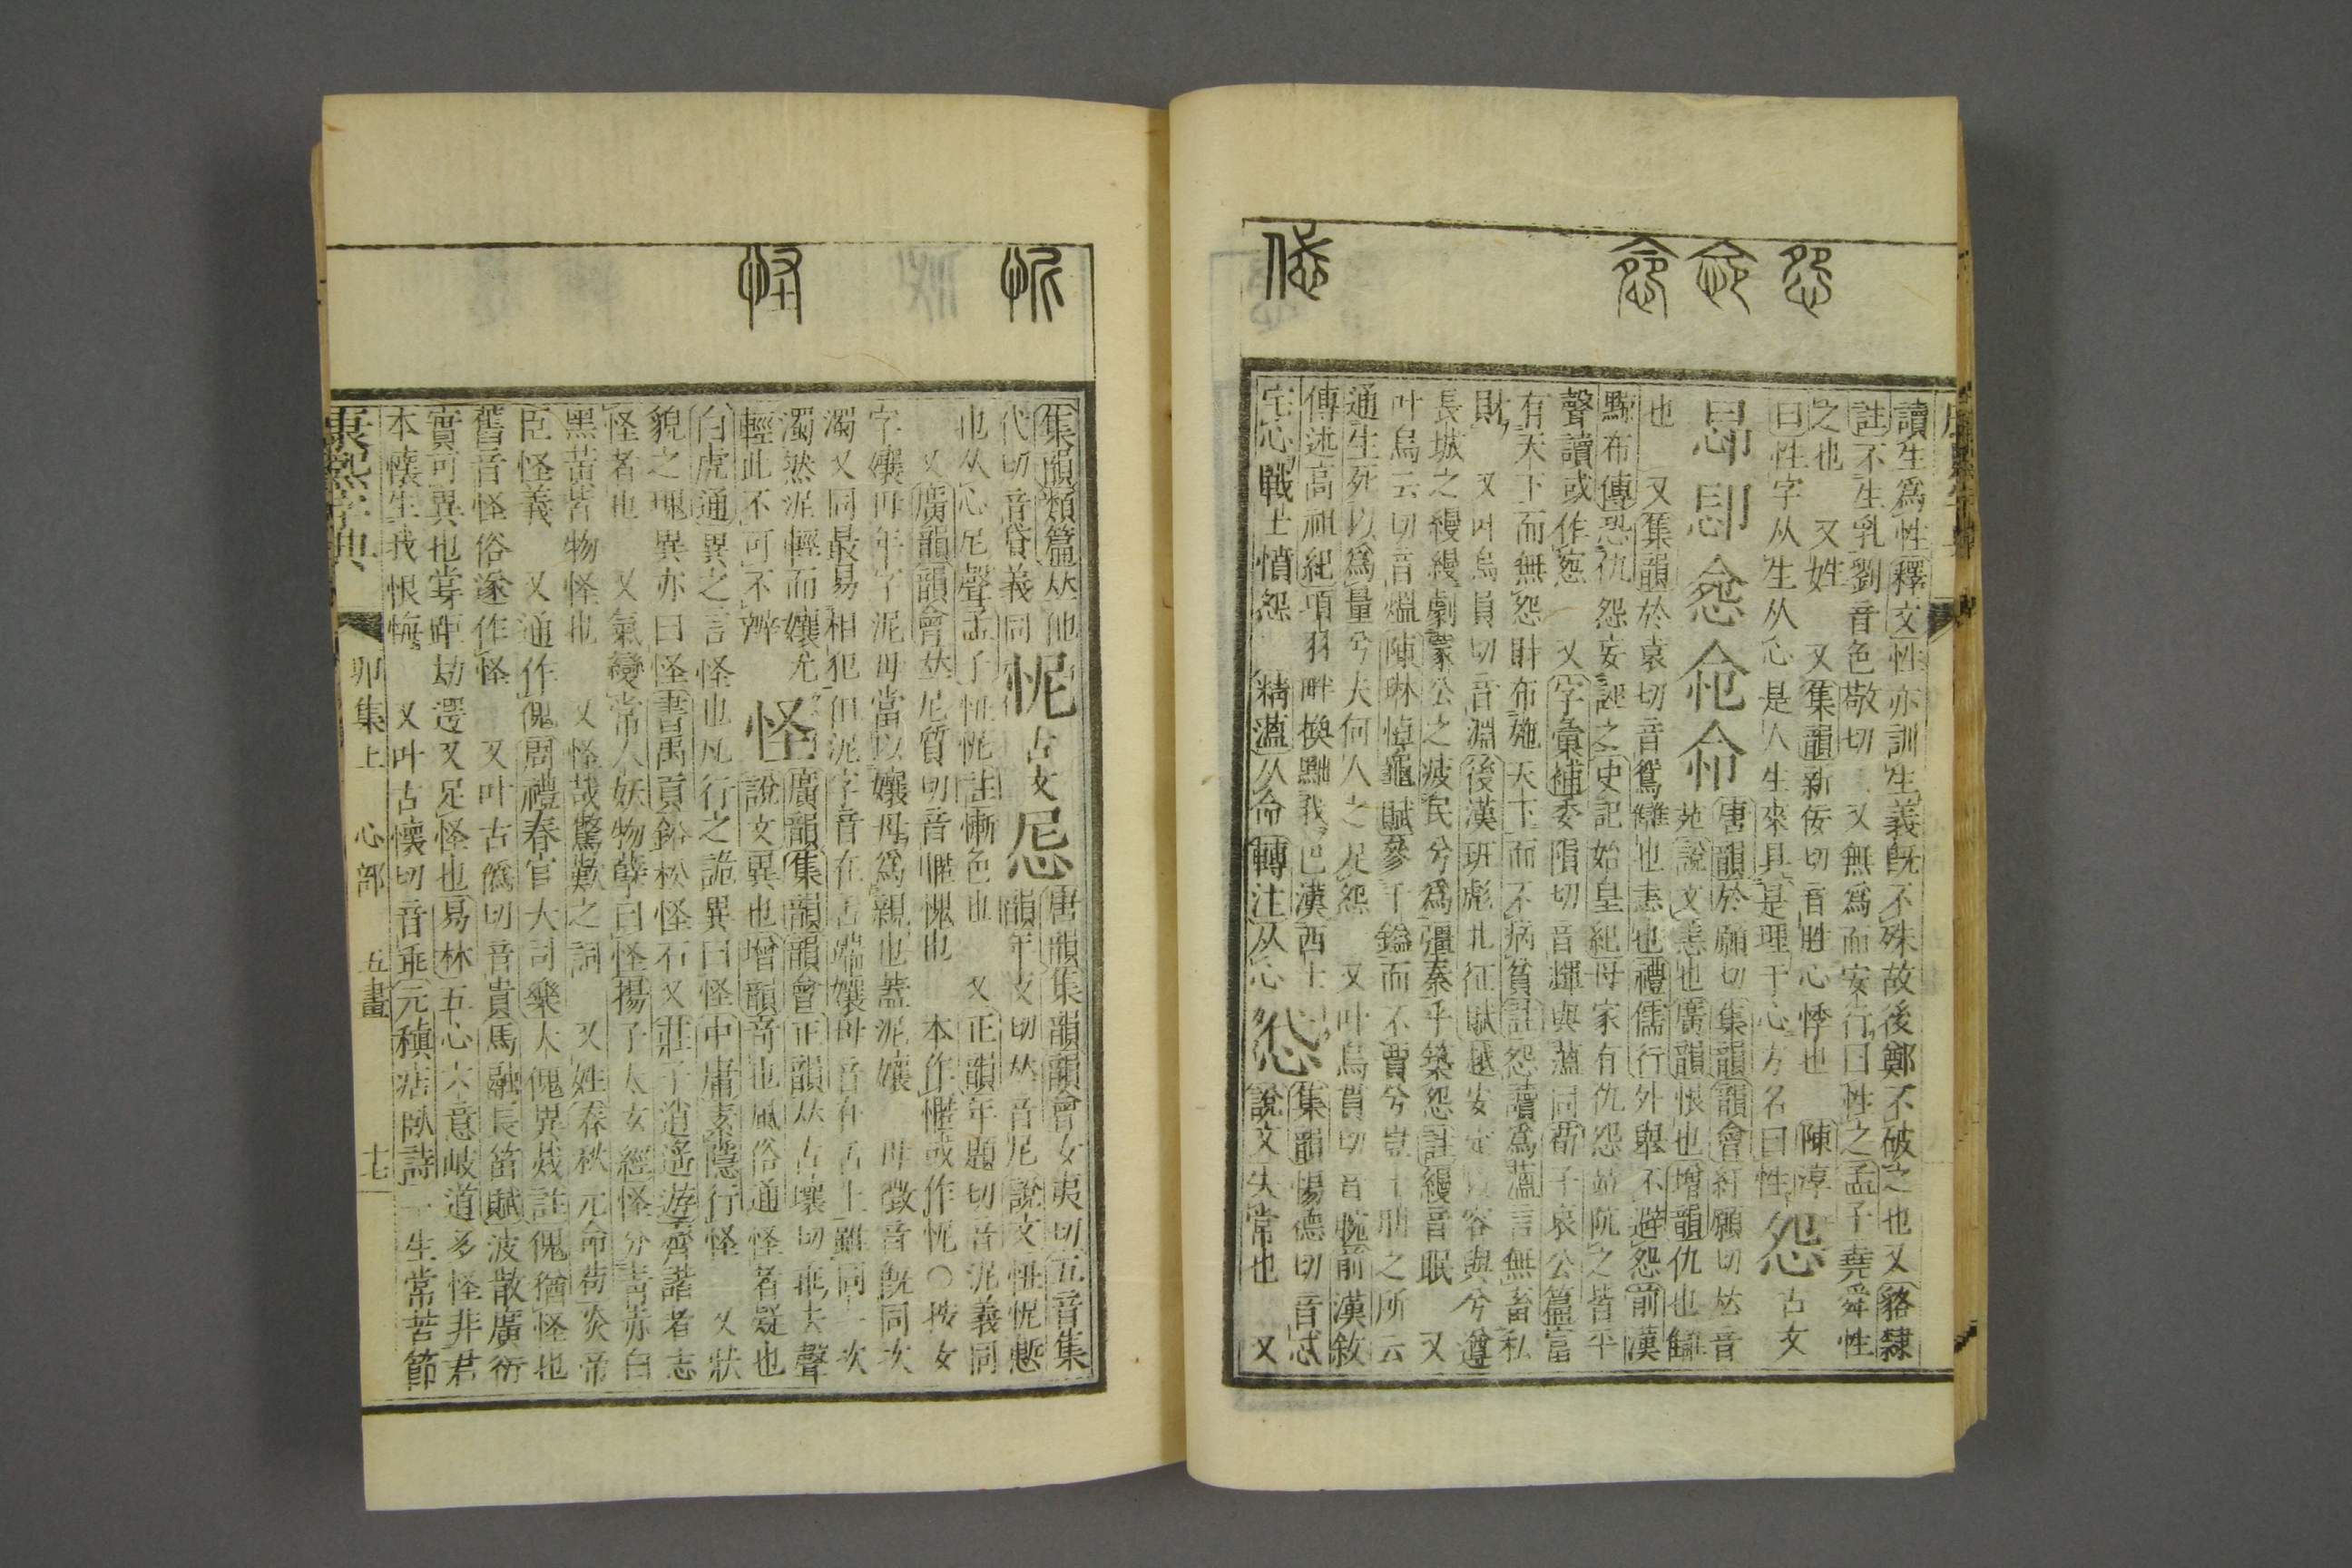 讀生爲性釋文性亦訓生義旣不殊故後鄭不破之也又貉隸
註不生乳劉音色敬切 又無爲而安行曰性之孟子堯舜性
之也 又姓 又集韻新佞切音胜心悸也 陳淳
曰性字从生从心是人生來具是理于心方名曰性 怨 古文
唐韻於願切集韻韻會紆願切𠀤音
苑說文恚也廣韻恨也增韻仇也讎
也 又集韻於袁切音鴛讎也恚也禮儒行外舉不避怨前漢
黥布傳恐仇怨妄誣之史記始皇紀母家有仇怨皆阬之皆平
聲讀或作寃 又字彙補委隕切音輝與薀同荀子哀公篇富
有天下而無怨財布施天下而不病貧註怨讀爲薀言無畜私
財 又叶烏員切音淵後漢班彪北征賦越安定以容與兮遵
長城之縵縵劇蒙公之疲民兮爲彊秦乎築怨註縵音眠 又
叶烏云切音熅陳琳悼龜賦參千鎰而不賈兮豈十朋之所云
通生死以爲量兮夫何人之足怨 又叶烏貫切音惋前漢敘
傳述高祖紀項羽畔換黜我巴漢西土
宅心戰士憤怨 精薀从命轉注从心 怂 集韻惕德切音忒
說文失常也 又
集韻類篇𠀤他
代切音貸義同 怩 古文 𢗗 唐韻集韻韻會女夷切五音集
韻年支切𠀤音尼說文忸怩慙
也从心尼聲孟子忸怩註慚色也 又正韻年題切音泥義同
又廣韻韻會𠀤尼質切音暱愧也 本作㥾或作怩○按女
字孃母年字泥母當以孃母爲親也蓋泥孃 母徵音旣同次
濁又同最易相犯但泥字音在舌端孃母音在舌上雖同一次
濁然泥輕而孃尤
輕此不可不辨 怪 廣韻集韻韻會正韻𠀤古壞切乖去聲
說文異也增韻奇也風俗通怪者疑也
白虎通異之言怪也凡行之詭異曰怪中庸素隱行怪 又狀
貌之瑰異亦曰怪書禹貢鉛松怪石又莊子逍遙遊齊諧者志
怪者也 又氣變常人妖物孽曰怪揚子太玄經怪分靑赤白
黑黃皆物怪也 又怪哉驚歎之詞 又姓春秋元命苞炎帝
臣怪義 又通作傀周禮春官大司樂大傀異烖註傀猶怪也
舊音怪俗遂作怪 又叶古僞切音貴馬融長笛賦波散廣衍
實可異也掌距劫遌又足怪也易林五心六意岐道多怪非君
本懷生我恨悔 又叶古懷切音乖元稹痁臥詩一生常苦節
康熙字典 卯集上 心部 五畫 十七